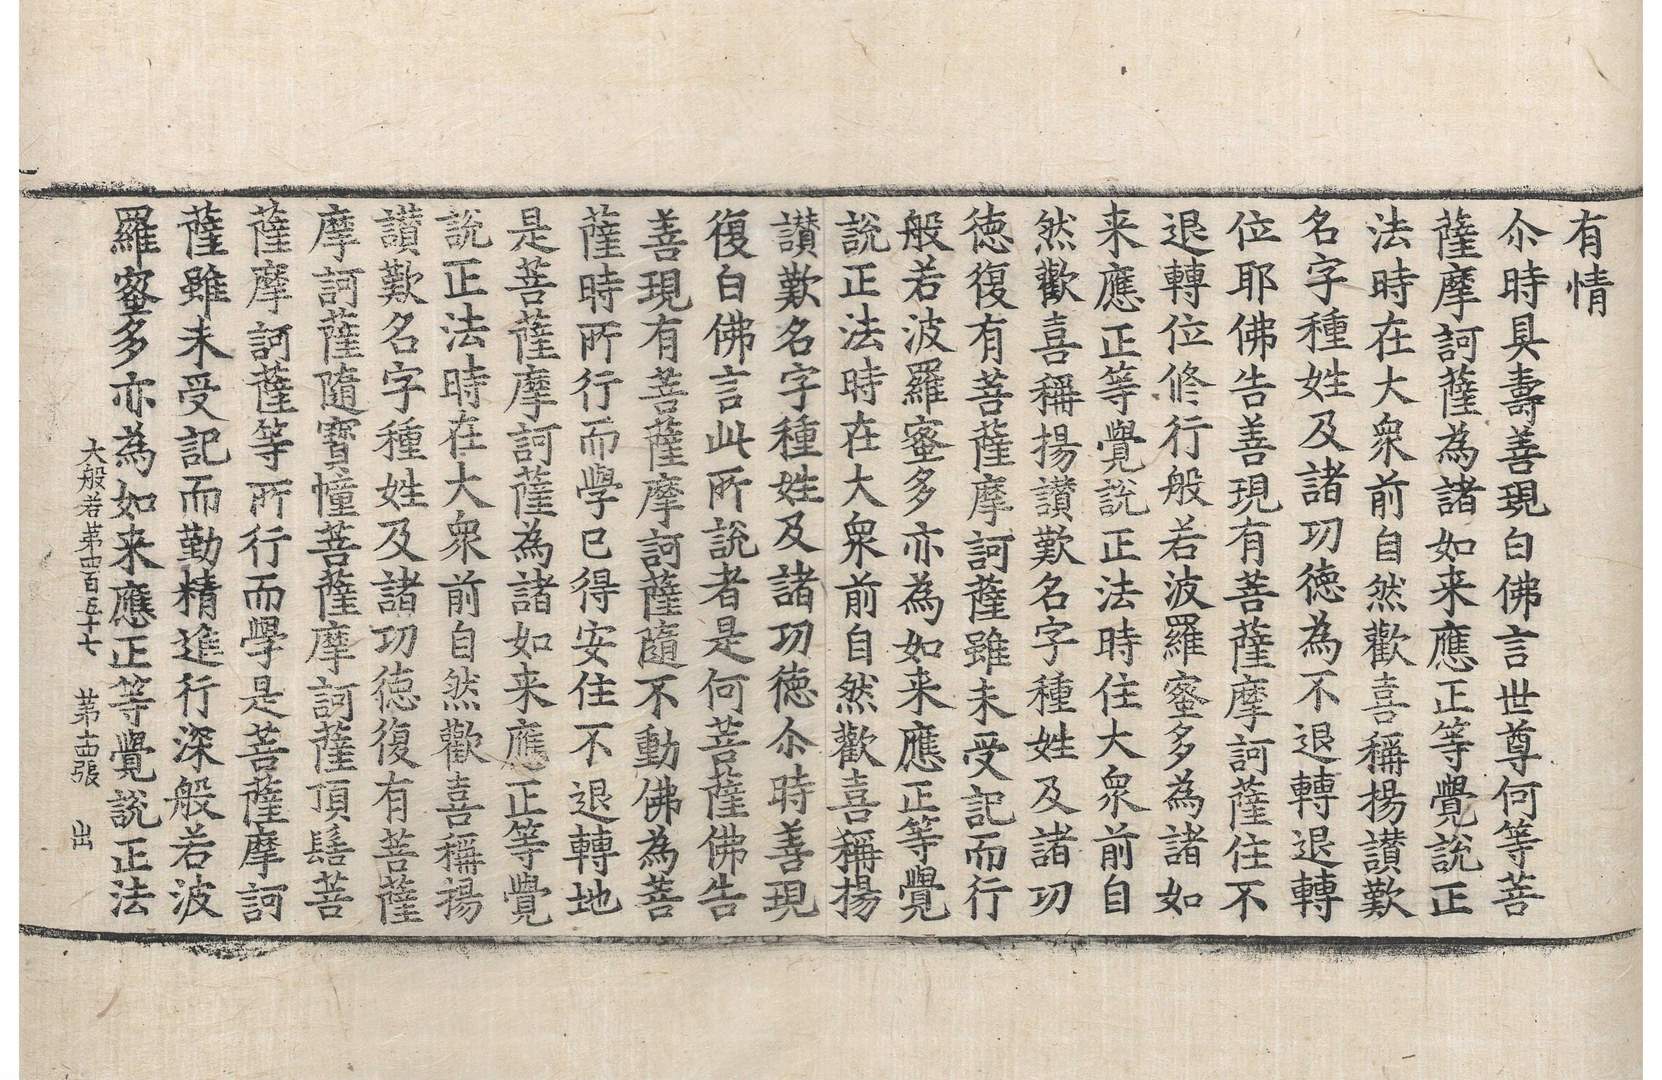 有情
尒時具壽善現白佛言世尊何等菩
薩摩訶薩為諸如来應正等覺說正
法時在大衆前自然歡喜稱揚讃歎
名字種姓及諸功徳為不退轉退轉
位耶佛告善現有菩薩摩訶薩住不
退轉位修行般若波羅蜜多為諸如
来應正等覺說正法時住大衆前自
然歡喜稱揚讃歎名字種姓及諸功
徳復有菩薩摩訶薩雖未受記而行
般若波羅蜜多亦為如来應正等覺
說正法時在大衆前自然歡喜稱揚
讃歎名字種姓及諸功徳尒時善現
復白佛言此所說者是何菩薩佛告
善現有菩薩摩訶薩隨不動佛為菩
薩時所行而學已得安住不退轉地
是菩薩摩訶薩為諸如来應正等覺
說正法時在大衆前自然歡喜稱揚
讃歎名字種姓及諸功徳復有菩薩
摩訶薩隨寶幢菩薩摩訶薩頂髻菩
薩摩訶薩等所行而學是菩薩摩訶
薩雖未受記而勤精進行深般若波
羅蜜多亦為如来應正等覺說正法
大般若第四百五十七 第十四張 出